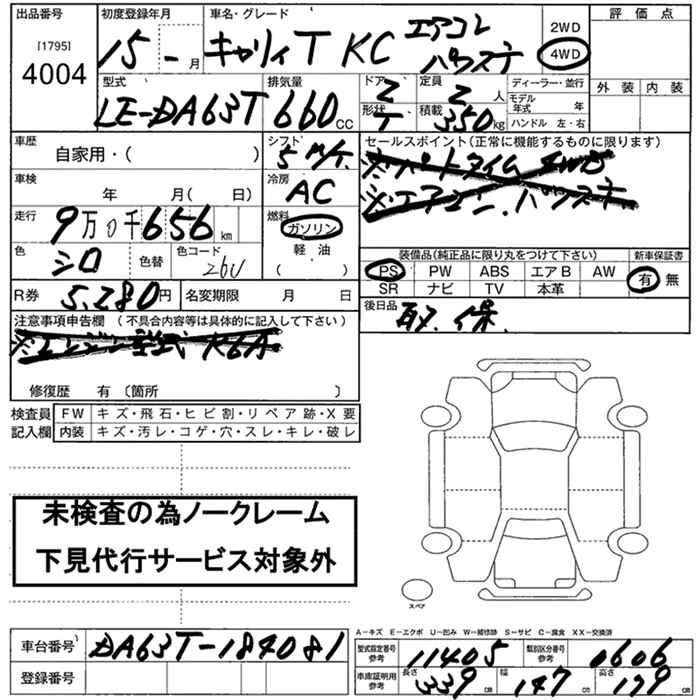 出品番号
[1795]
4004
初度登録年月
15 - 月
車名・グレード
キャリィT KC エアコン
パワステ
2WD
4WD
評 価 点
外 装 内 装
型式
LE-DA63T
排気量
660 CC
ドア
2
形状
T
定員
2 人
積載
350 kg
ディーラー・並行
モデル年式 年
ハンドル 左・右
車歴
自家用・( )
シフト
5 M/T.
セールスポイント(正常に機能するものに限ります)
※パートタイム 4WD
※エアコン.パワステ.
車検
年 月( 日)
冷房
AC
走行
9万0千656 km
燃料
ガソリン
軽 油
( )
色
シロ
色替
色コード
26U
装備品(純正品に限り丸をつけて下さい)
PS PW ABS エアB AW
SR ナビ TV 本革
新車保証書
有 無
R券
5,280円
名変期限 月 日
後日品
取.保.
注意事項申告欄 (不具合内容等は具体的に記入して下さい)
※エンジン型式 K6A
修復歴 有 〔箇所 〕
検査員
記入欄
FW キズ・飛石・ヒビ割・リペア跡・X要
内装 キズ・汚レ・コゲ・穴・スレ・キレ・破レ
未検査の為ノークレーム
下見代行サービス対象外
スペア
A-キズ E-エクボ U-凹み W-補修跡 S-サビ C-腐食 XX-交換済
車台番号
DA63T-184081
登録番号
型式指定番号
参考
11405
類別区分番号
参考
0606
車庫証明用
参考
長さ
339 cm
幅
147 cm
高さ
179 cm